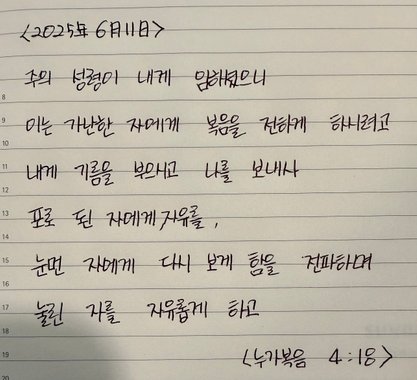 <2025年 6月 11日>
주의 성령이 내게 임하셨으니
8
9
이는 가난한 자에게 복음을 전하게 하시려고
10
11
내게 기름을 부으시고 나를 보내사
12
13
포로 된 자에게 자유를,
14
15
눈먼 자에게 다시 보게 함을 전파하며
16
17
눌린 자를 자유롭게 하고
18
19
<누가복음 4:18>
20